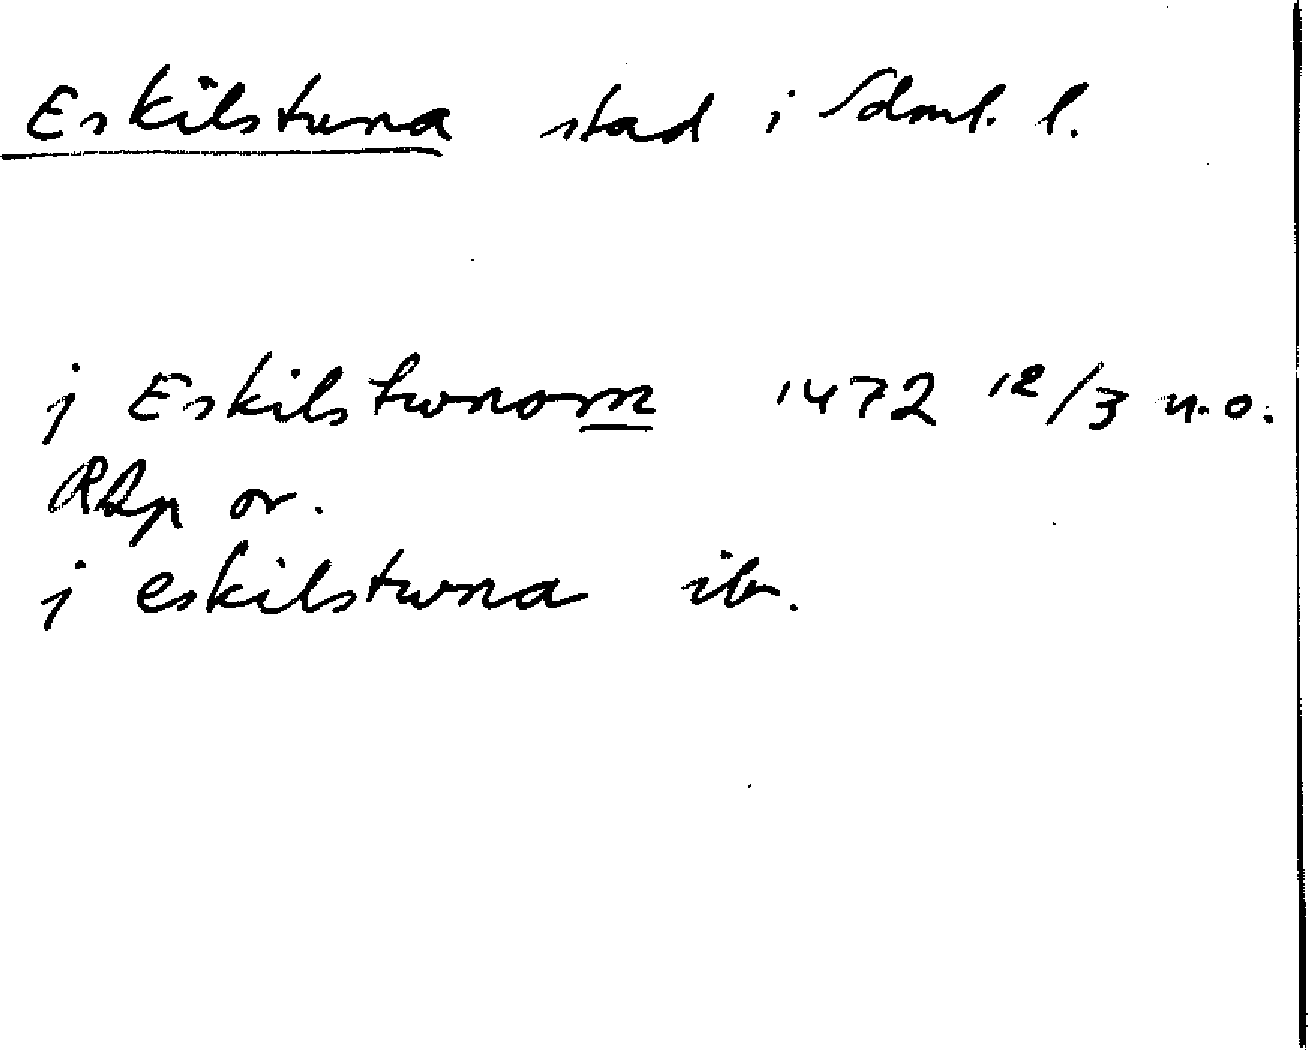 Eskilstuna stad i Sdml. l.
j Eskilstwnom 1472 12/3 n.o.
RAp or.
j eskilstwna ib.